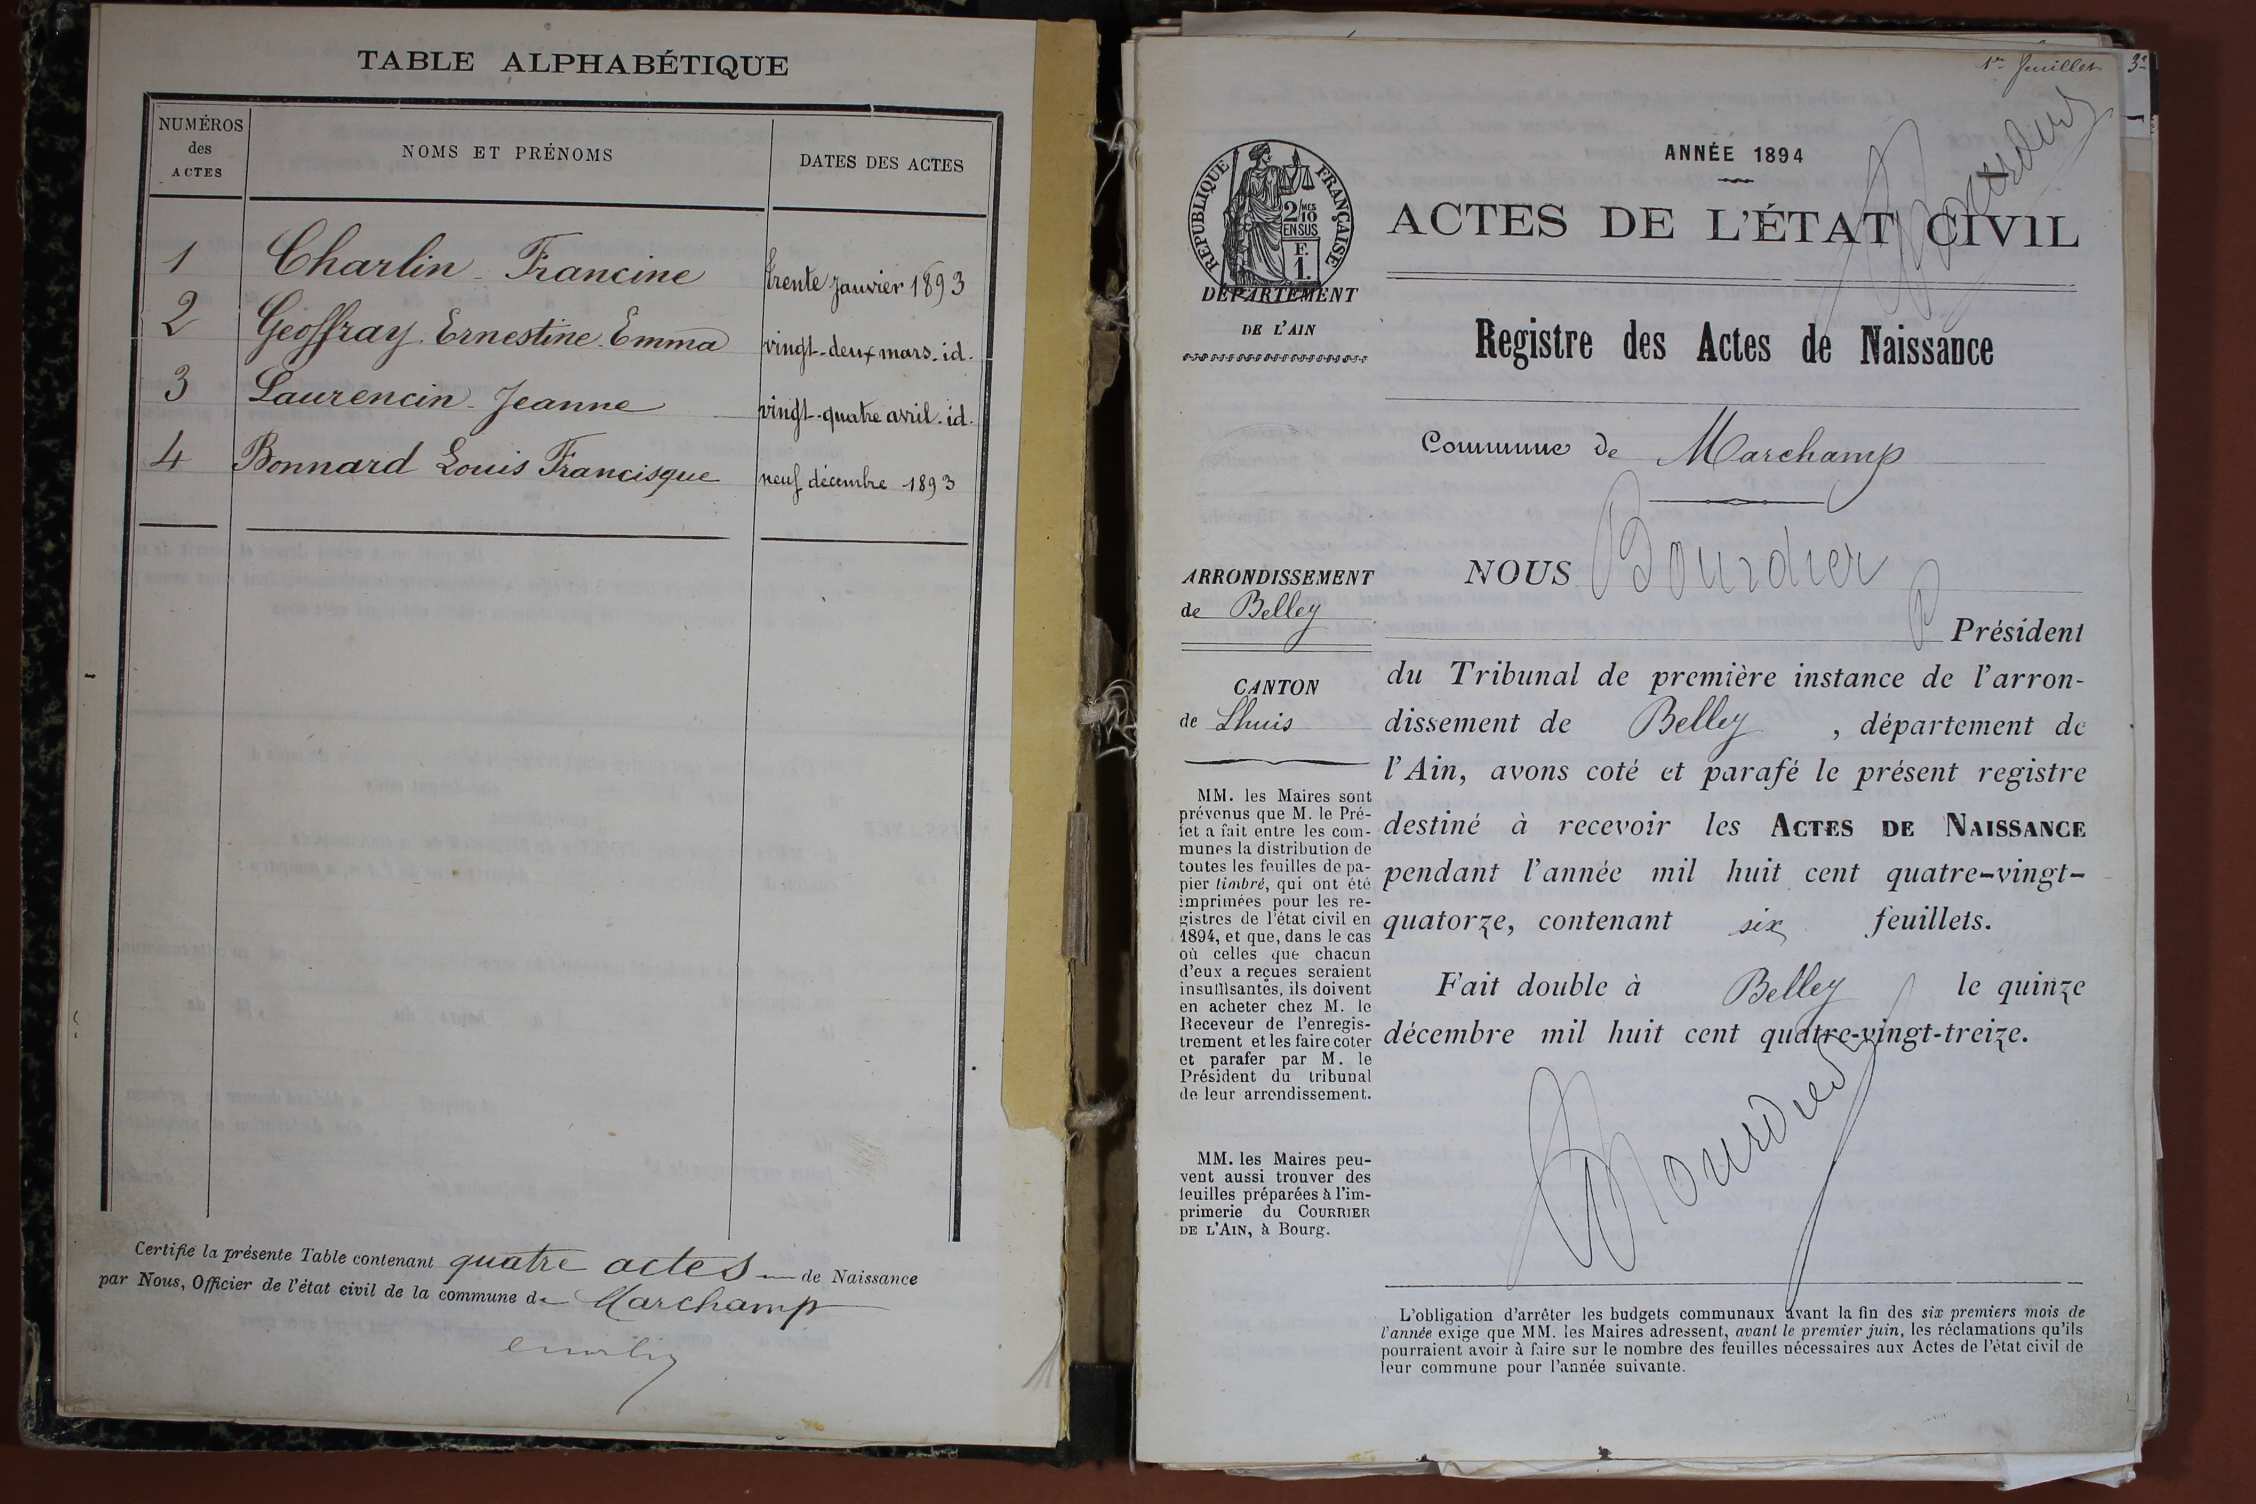 TABLE ALPHABÉTIQUE
NUMÉROS
des
ACTES
NOMS ET PRÉNOMS
DATES DES ACTES
1 Charlin - Francine trente janvier 1893
2 Geoffray. Ernestine. Emma vingt-deux mars. id.
3 Laurencin - Jeanne vingt-quatre avril. id.
4 Bonnard Louis Francisque neuf décembre 1893
Certifié la présente Table contenant quatre actes — de Naissance
par Nous, Officier de l'état civil de la commune de Marchamp
1er feuillet
Bourdier
RÉPUBLIQUE FRANÇAISE
2/10 MES
EN SUS
F.
1.
ANNÉE 1894
ACTES DE L'ÉTAT CIVIL
DÉPARTEMENT
DE L'AIN
Registre des Actes de Naissance
Commune de Marchamp
ARRONDISSEMENT
de Belley
CANTON
de Lhuis
MM. les Maires sont
prévenus que M. le Pré-
fet a fait entre les com-
munes la distribution de
toutes les feuilles de pa-
pier timbré, qui ont été
imprimées pour les re-
gistres de l'état civil en
1894, et que, dans le cas
où celles que chacun
d'eux a reçues seraient
insuffisantes, ils doivent
en acheter chez M. le
Receveur de l'enregis-
trement et les faire coter
et parafer par M. le
Président du tribunal
de leur arrondissement.
MM. les Maires peu-
vent aussi trouver des
feuilles préparées à l'im-
primerie du COURRIER
DE L'AIN, à Bourg.
NOUS Bourdier
P Président
du Tribunal de première instance de l'arron-
dissement de Belley , département de
l'Ain, avons coté et parafé le présent registre
destiné à recevoir les ACTES DE NAISSANCE
pendant l'année mil huit cent quatre-vingt-
quatorze, contenant six feuillets.
Fait double à Belley le quinze
décembre mil huit cent quatre-vingt-treize.
Bourdier
L'obligation d'arrêter les budgets communaux avant la fin des six premiers mois de
l'année exige que MM. les Maires adressent, avant le premier juin, les réclamations qu'ils
pourraient avoir à faire sur le nombre des feuilles nécessaires aux Actes de l'état civil de
leur commune pour l'année suivante.